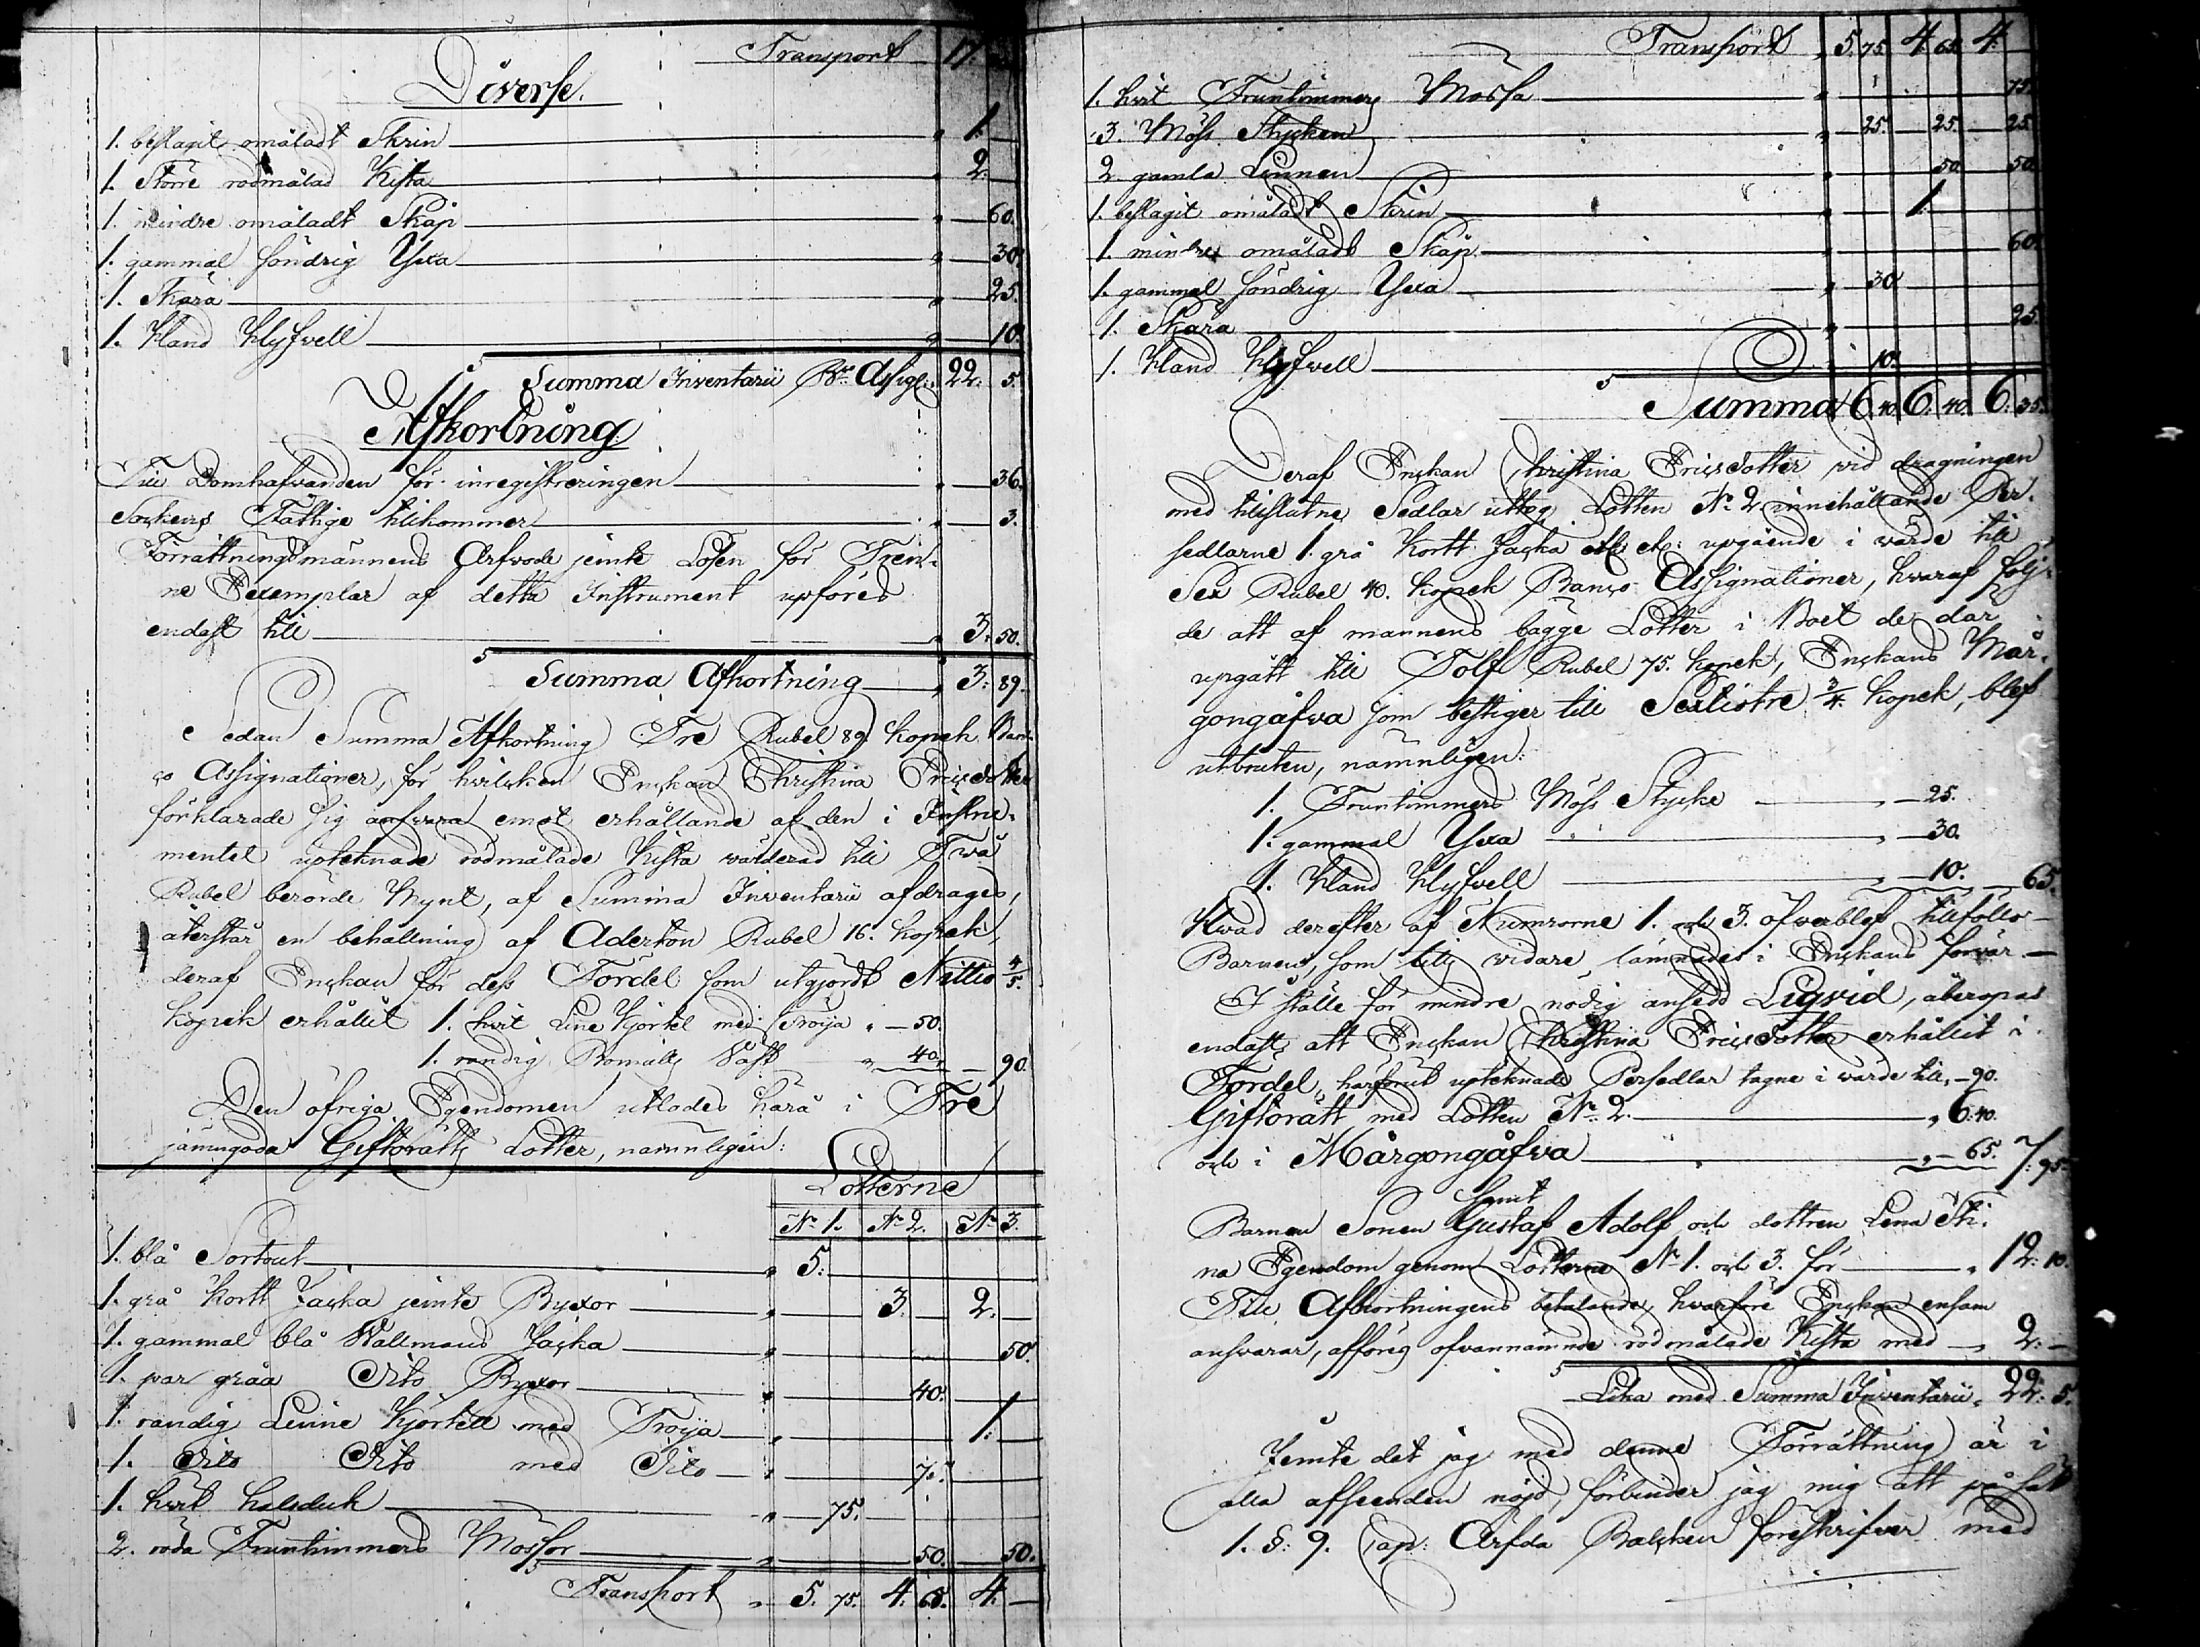 Transport 17.
Diverse.
1. beslagit omåladt Skrin 1.
1. Större rödmålad Kista 2.
1. mindre omåladt Skåp 60.
1. gammal söndrig Yxa 30.
1. Skära 25.
1. Hand Klyfvell 10.
Summa Inventarii Assigr. 22. 5.
Afkortning.
Till Domhafvanden för inregistreringen 36.
Sockens Fattige tillkommer 3.
Förrättningsmännens Arfvode jemte Lösen för Tven-
ne Exemplar af detta Instrument upföres
endast till 3. 50.
Summa Afkortning 3: 89.
Sedan Summa Afkortning Tre Rubel 89. Kopek Ban-
co Assignationer, för hvilcken Enckan Christina Ericsdotter
förklarade sig ansvara emot erhållande af den i Instru-
mentet upteknade rödmålade Kista värderad till Två
Rubel berörde Mynt, af Summa Inventarii afdrages,
återstår en behållning af Aderton Rubel 16. Kopek,
deraf Enckan för dess Fördel som utgjordt Nittio 4/5.
Kopek erhållit 1. hvit Line Kjortel med Tröija 50.
1. randig Bomulls Väst 40. 90.
Den öfriga Egendomen utlades härå i Tre
jämngoda Giftorätts Lotter, namnligen:
Lotterne
No 1. No 2. No 3.
1. blå Sortout 5.
1. grå Kortt Jacka jemte Byxor 3. 2.
1. gammal blå Wallmans Jacka 50.
1. par gråa Dito Byxor 40.
1. randig Linne Kjortell med Tröija 1.
1. Dito Dito med Dito 75.
1. hvit halsduk 75.
2. röda Fruntimmers Mössor 50. 50.
Transport 5. 75. 4. 65. 4.
Transport 5. 75. 4. 65. 4.
1. hvit Fruntimmers Mössa 75.
3. Möss Stycken 25. 25. 25.
2. gamla Linnen 50. 50.
1. beslagit omåladt Skrin 1.
1. mindre omåladt Skåp 60.
1. gammal söndrig Yxa 30.
1. Skära 25.
1. Hand Klyfvell 10.
Summa 6. 40. 6. 40. 6. 35.
Deraf Enckan Christina Ericsdotter vid dragningen
med tillslutne Sedlar uttog Lotten No 2 innehållande Per-
sedlarne 1. grå Kortt Jacka etc. etc: upgående i värde till
Sex Rubel 40. Kopek Banco Assignationer, hvaraf följ-
de att af mannens bägge Lotter i Boet de där
upgått till Tolf Rubel 75. Kopek, Enckans Mår-
gongåfva som bestiger till Sextiotre 3/4. Kopek, blef
utbruten, namnligen:
1. Fruntimmers Möss Stycke 25.
1. gammal Yxa 30.
1. Hand Klyfvell 10. 65.
Hvad derefter af Numrorne 1. och 3. öfverblef tillföllo
Barnen, som till vidare lämnades i Enckans förvar
I ställe för mindre nödig ansedd Liqvid, åberopas
endast att Enckan Christina Ericsdotter erhållit i
Fördel, härförut upteknade Persedlar tagne i värde till 90.
Giftorätt med Lotten No 2. 6. 40.
och i Mårgongåfva 65. 7: 95.
samt
Barnen Sonen Gustaf Adolf och dottren Lena Sti-
na Egendom genom Lotterne No 1. och 3. för 12. 10.
Till Afkortningens betalande, hvarföre Enckan ensam
ansvarar, afföres ofvannämnde rödmålade Kista med 2:
Lika med Summa Inventarii 22: 5.
Jemte det jag med denne Förrättning är i
alla afseenden nöjd, förbinder jag mig att på sät
1. §: 9. Cap: Ärfda Balcken föreskrifver med